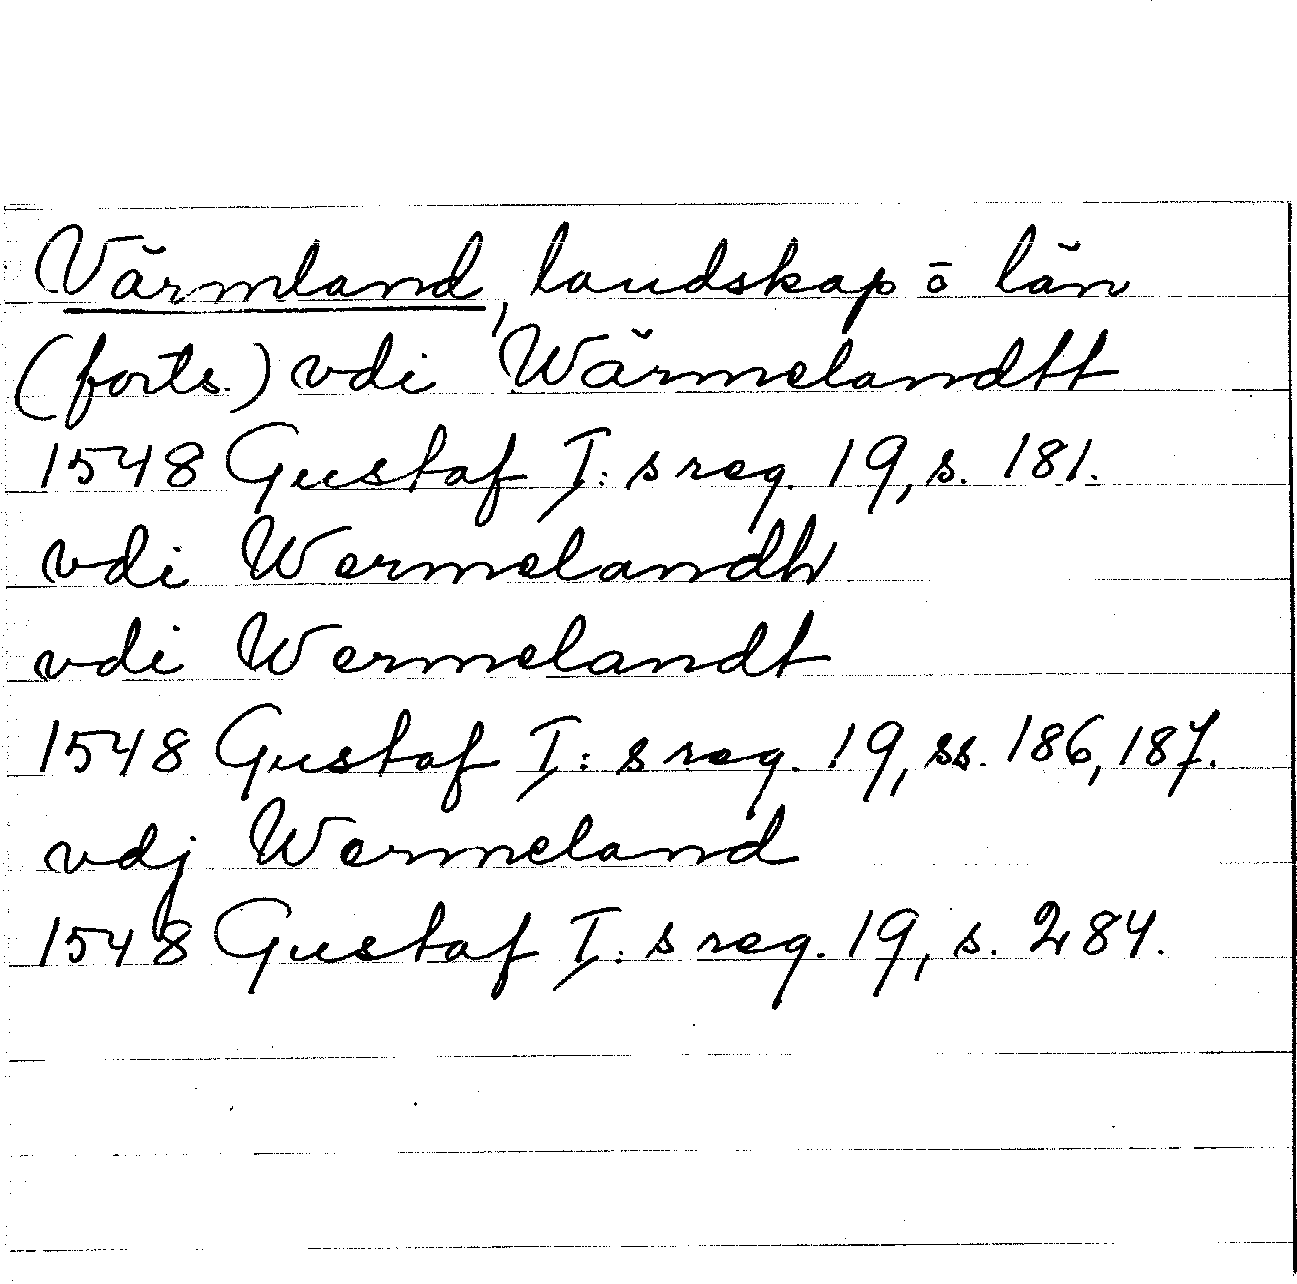 Värmland, landskap ō län
(forts.) vdi Wärmelandtt
1548 Gustaf I: s reg. 19, s. 181.
vdi Wermelandh
vdi Wermelandt
1548 Gustaf I: s reg. 19, ss. 186, 187.
vdj Wermeland
1548 Gustaf I: s reg. 19, s. 284.